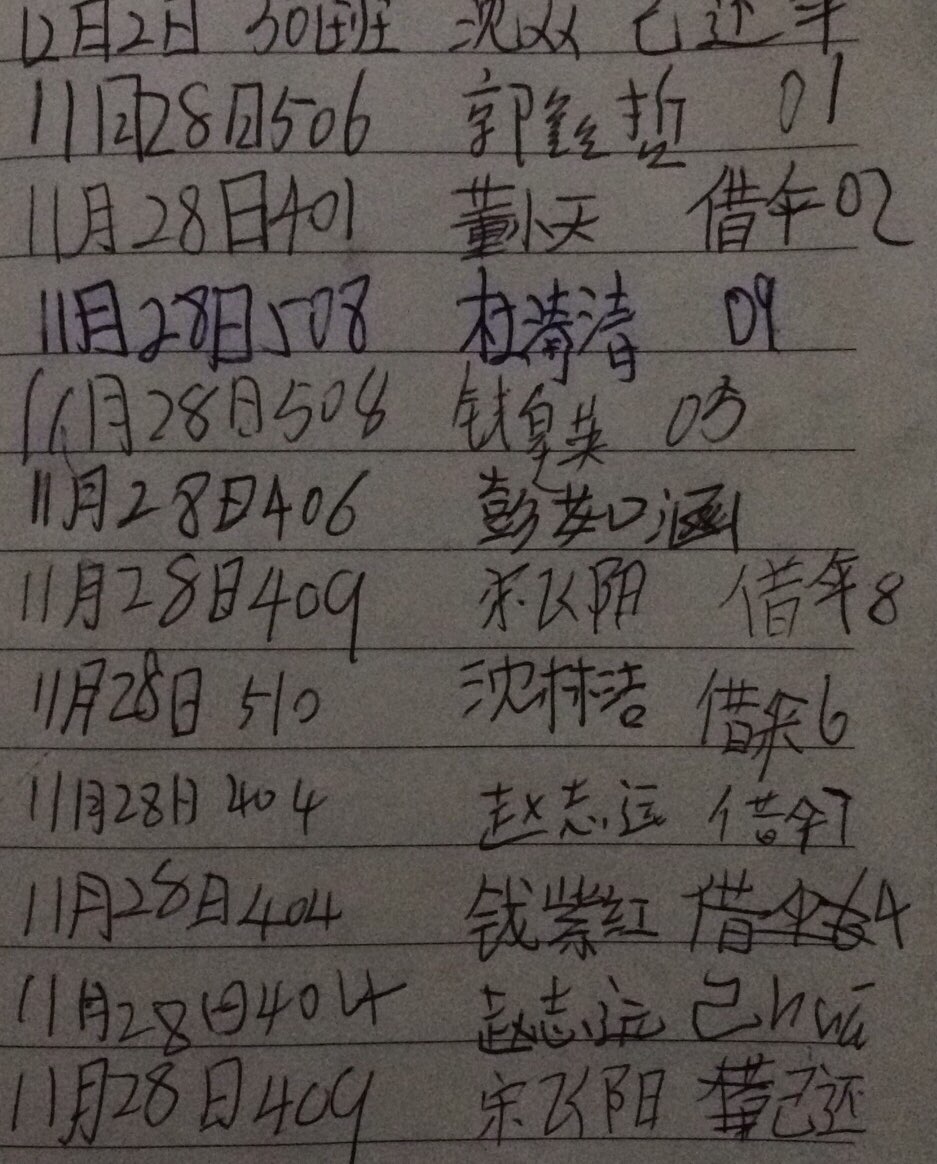 12月2日 301班 沈双 已还伞
11月28日506 郭鑫哲 01
11月28日401 董小天 借伞02
11月28日508 杜清清 09
11月28日508 钱皇英 03
11月28日406 彭
11月28日409 宋飞阳 借伞8
11月28日 510 沈林浩 借伞6
11月28日 404 赵志远 借伞7
11月28日404 钱紫红 借伞4
11月28日404 赵志远 已
11月28日409 宋飞阳 已还